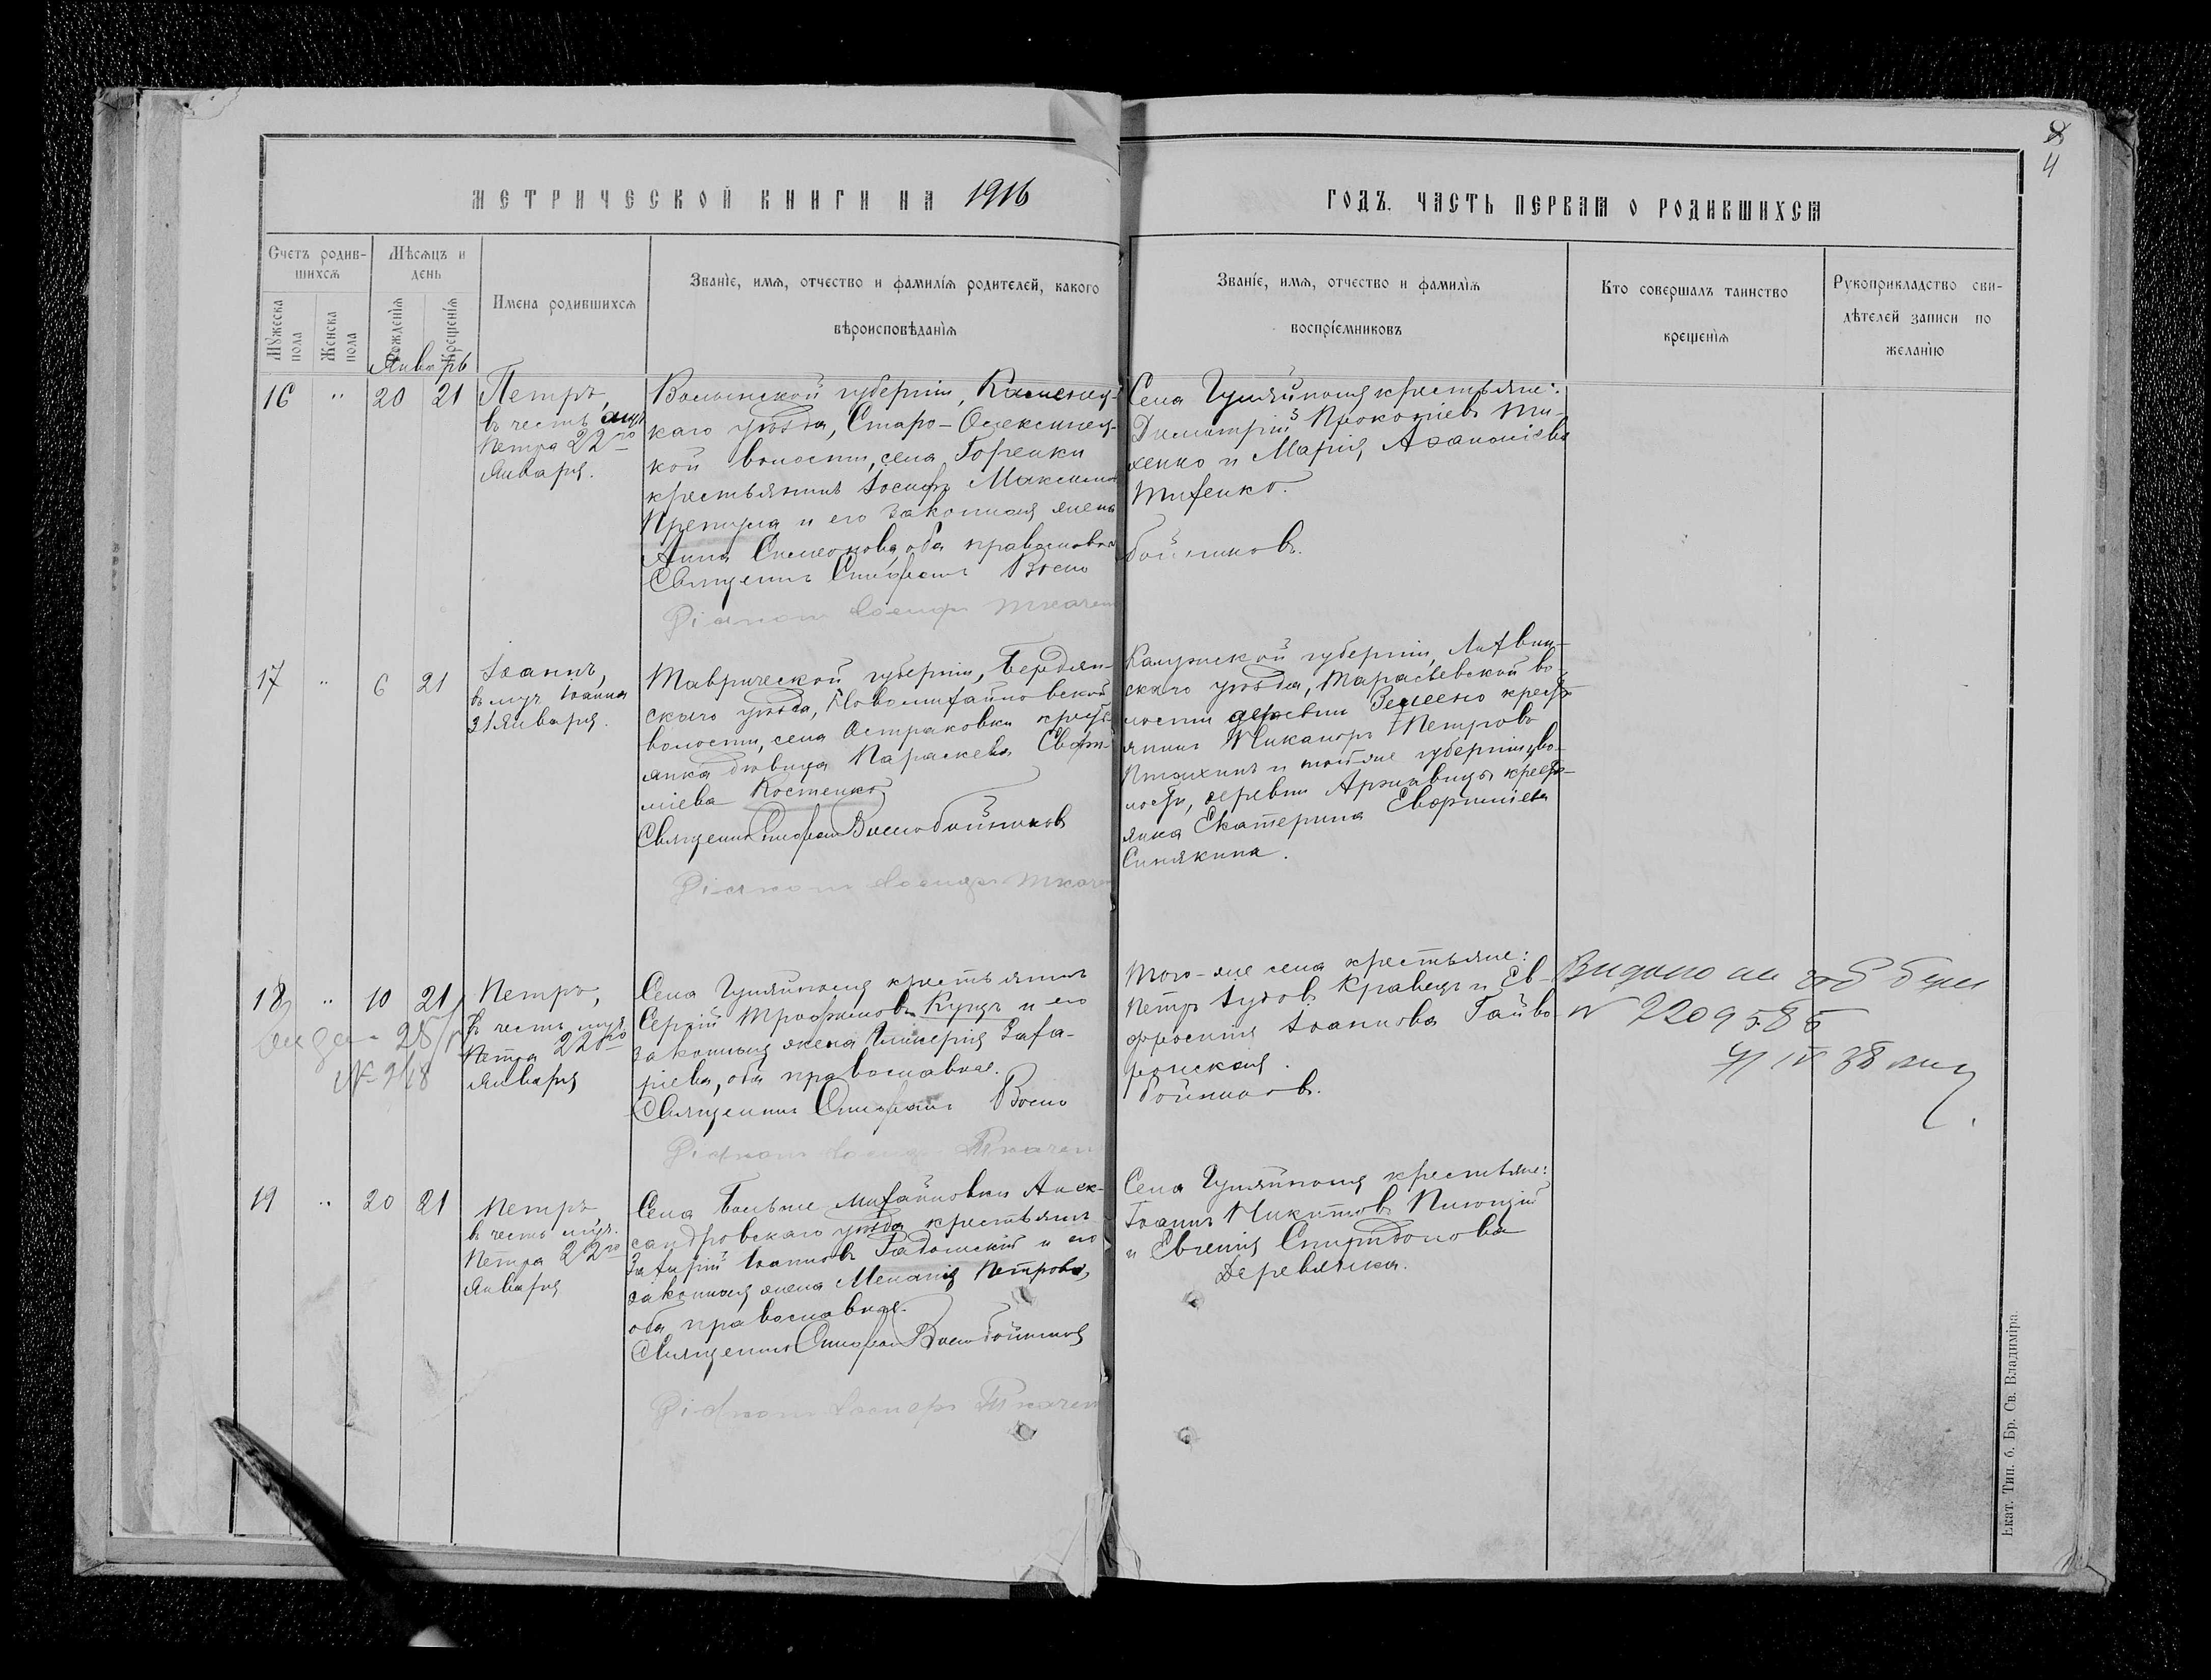 8
4
МЕТРИЧЕСКОЙ КНИГИ НА 1916
ГОДЪ. ЧАСТЬ ПЕРВАЯ О РОДИВШИХСЯ
Счетъ родив-
шихся
Мѣсяцъ и
день
Мужеска
пола
Женска
пола
Рожденія
Крещенія
Имена родившихся
Званіе, имя, отчество и фамилія родителей, какого
вѣроисповѣданія
Званіе, имя, отчество и фамилія
воспріемниковъ
Кто совершалъ таинство
крещенія
Рукоприкладство сви-
дѣтелей записи по
желанію
Январь
16 " 20 21
Петръ,
въ честь муч.
Петра 22го
Января.
Волынской губерніи, Кременец-
каго уѣзда, Старо-Олексинец-
кой волости, села Горенки
крестьянинъ Іосифъ Максимов
и его законная жена
Анна Симеонова, оба православн
Священникъ Стефанъ Воско
Діаконъ Іосифъ Ткачен
Села Гуляйполя крестьяне:
Димитрій Прокопіевъ Ти-
хенко и Марія Афанасіева
Тихенко.
бойниковъ.
17 " 6 21
Іоаннъ,
въ муч. Іоанна
31 Января.
Таврической губерніи, Бердян-
скаго уѣзда, Новомихайловской
волости, села Остраковки кресть
янка дѣвица Параскева Евфи-
міева Костенко
Священникъ Стефанъ Воскобойниковъ
Діаконъ Іосифъ Ткачен
Калужской губерніи, Лихвин-
скаго уѣзда, во-
лости деревни кресть-
янинъ Никаноръ Петровъ
и той же губерніи, во-
лости, деревни кресть-
янка Екатерина Евфиміева
Синякина.
18 " 10 21
Петръ,
въ честь муч.
Петра 22го
Января
Села Гуляйполя крестьянинъ
Сергій Трофимовъ Куцъ и его
законная жена Гликерія Заха-
ріева, оба православные.
Священникъ Стефанъ Воско
Діаконъ Іосифъ Ткачен
Того-же села крестьяне:
Петръ Кравецъ и Ев-
фросинія Іоаннова Гайво
ронская.
бойниковъ.
N 2209585
IV 38
19 " 20 21
Петръ
въ честь муч.
Петра 22го
Января
Села Больше Михайловки Алек-
сандровскаго уѣзда крестьянинъ
Захарій Іоанновъ Гадомскій и его
законная жена Меланія Петрова,
оба православные.
Священникъ Стефанъ Воскобойниковъ
Діаконъ Іосифъ Ткачен
Села Гуляйполя крестьяне:
Іоаннъ Никитовъ
и Евгенія Спиридонова
Деревянка.
Екат. Тип. б. Бр. Св. Владиміра.